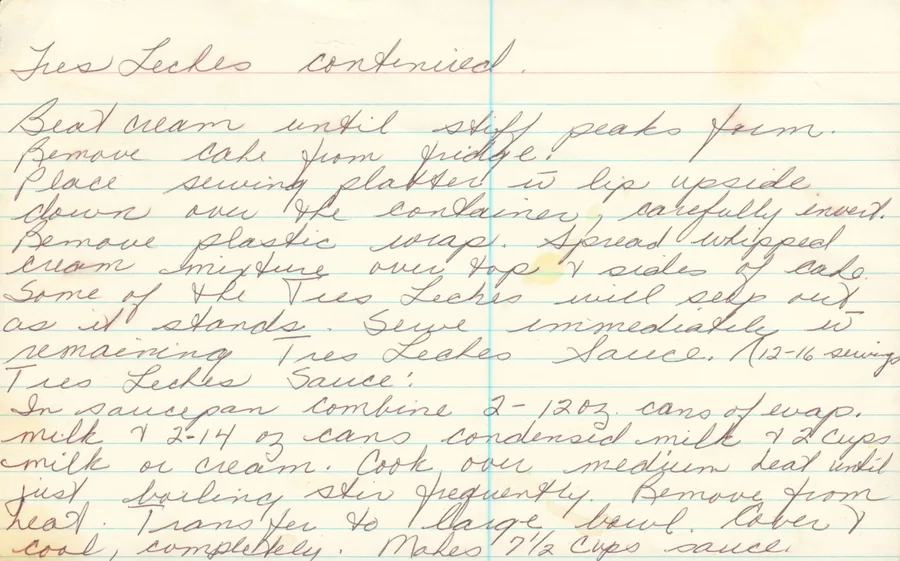 Tres Leches continued.
Beat cream until stiff peaks form.
Remove cake from fridge.
Place serving platter w̄ lip upside
down over the container, carefully invert.
Remove plastic wrap. Spread whipped
cream mixture over top & sides of cake.
Some of the Tres Leches will seep out
as it stands. Serve immediately w̄
remaining Tres Leches Sauce. (12-16 servings
Tres Leches Sauce:
In saucepan combine 2-12oz. cans of evap.
milk & 2-14 oz cans condensed milk & 2 cups
milk or cream. Cook over medium heat until
just boiling stir frequently. Remove from
heat. Transfer to large bowl. Cover &
cool, completely. Makes 7 1/2 cups sauce.